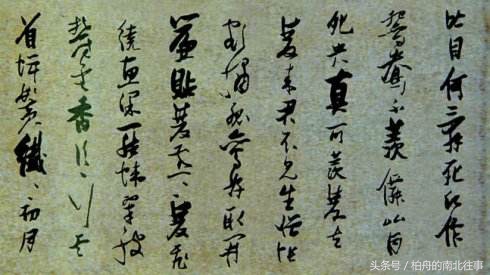 比目何辞死願作
鴛鴦不羡仙比目
鴛央真可羡雙去
雙来君不見生憎帳
額繡孤鸞好取開
簾貼雙燕々雙飛
繞畫梁羅帷翠被
鬱金香片々行雲
着蟬鬢纖々初月
头条号 / 柏舟的南北往事